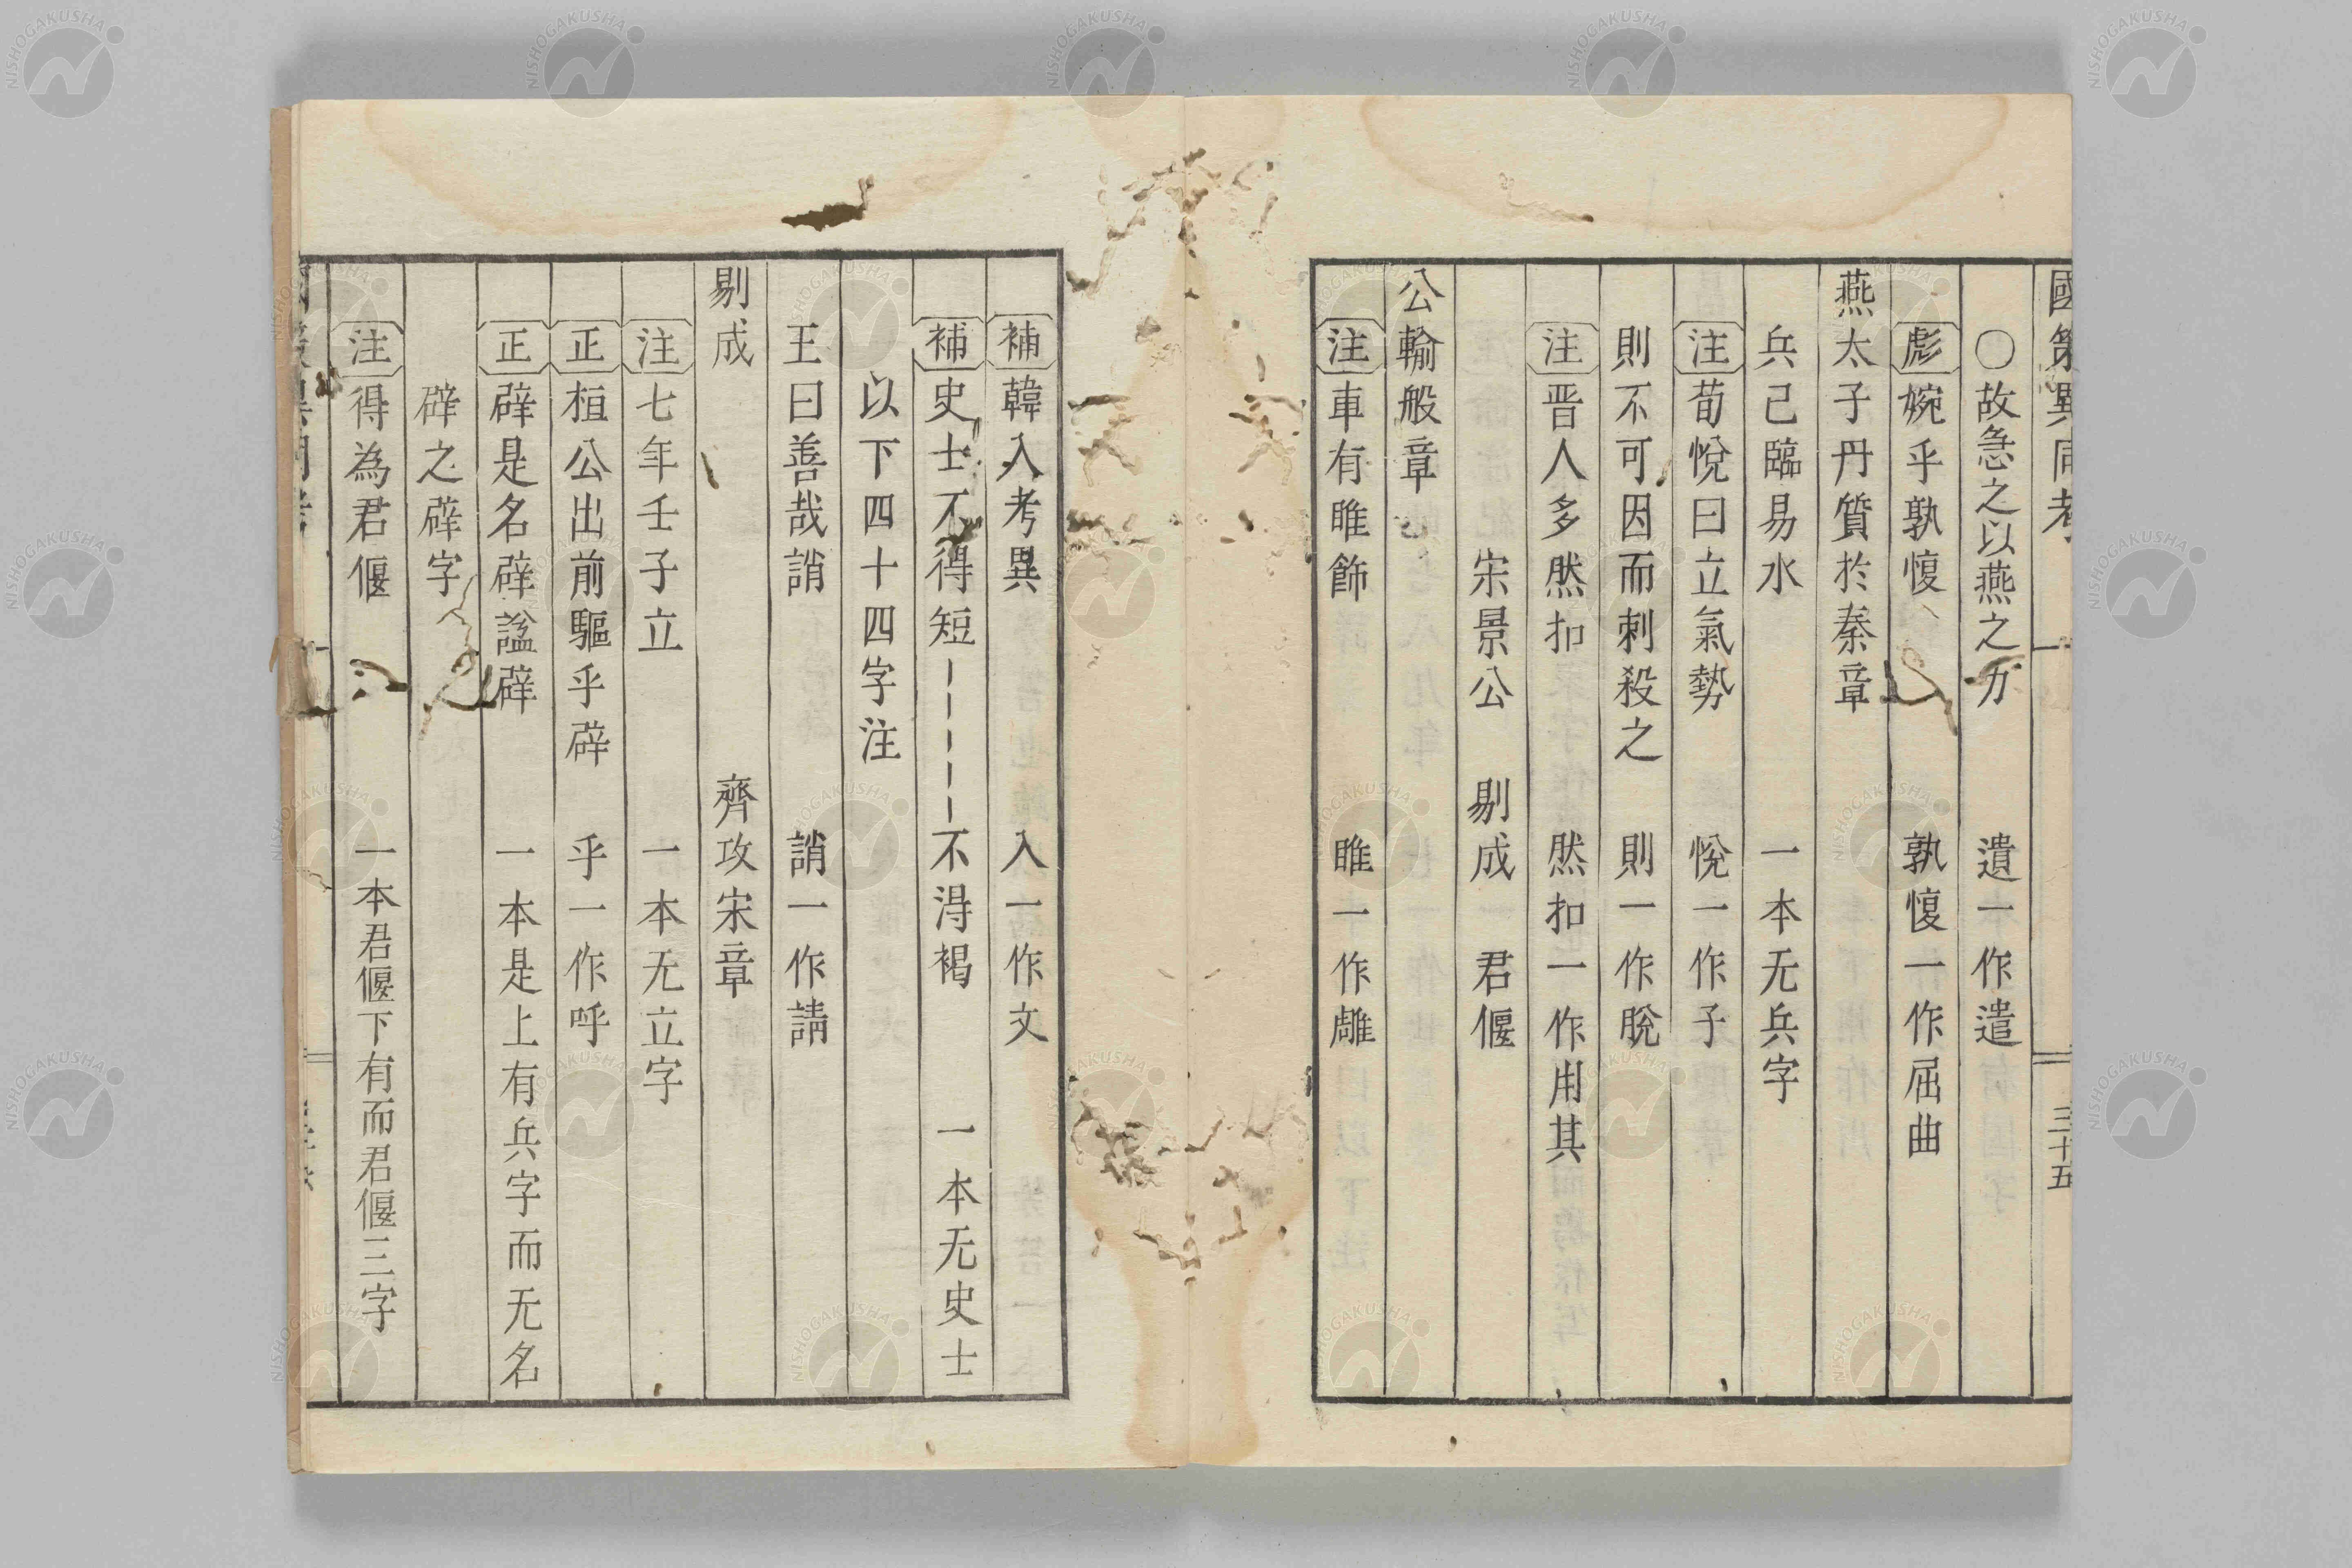 國策異同考 三十五
○故急之以燕之力 遺一作遣
彪 婉乎孰愎 孰愎一作屈曲
燕太子丹質於秦章
兵已臨易水 一本无兵字
注 荀悅曰立氣勢 悅一作子
則不可因而刺殺之 則一作脫
注 晋人多然扣 然扣一作用其
宋景公 剔成 君偃
公輸般章
注 車有雎飾 雎一作雕
補 韓入考異 入一作文
補 史士不得短－－－－－不淂褐 一本无史士
以下四十四字注
王曰善哉誚 誚一作請
剔成 齊攻宋章
注 七年壬子立 一本无立字
正 桓公出前驅乎辟 乎一作呼
正 辟是名辟諡辟 一本是上有兵字而无名
辟之辟字
注 得為君偃 一本君偃下有而君偃三字
NISHOGAKUSHA